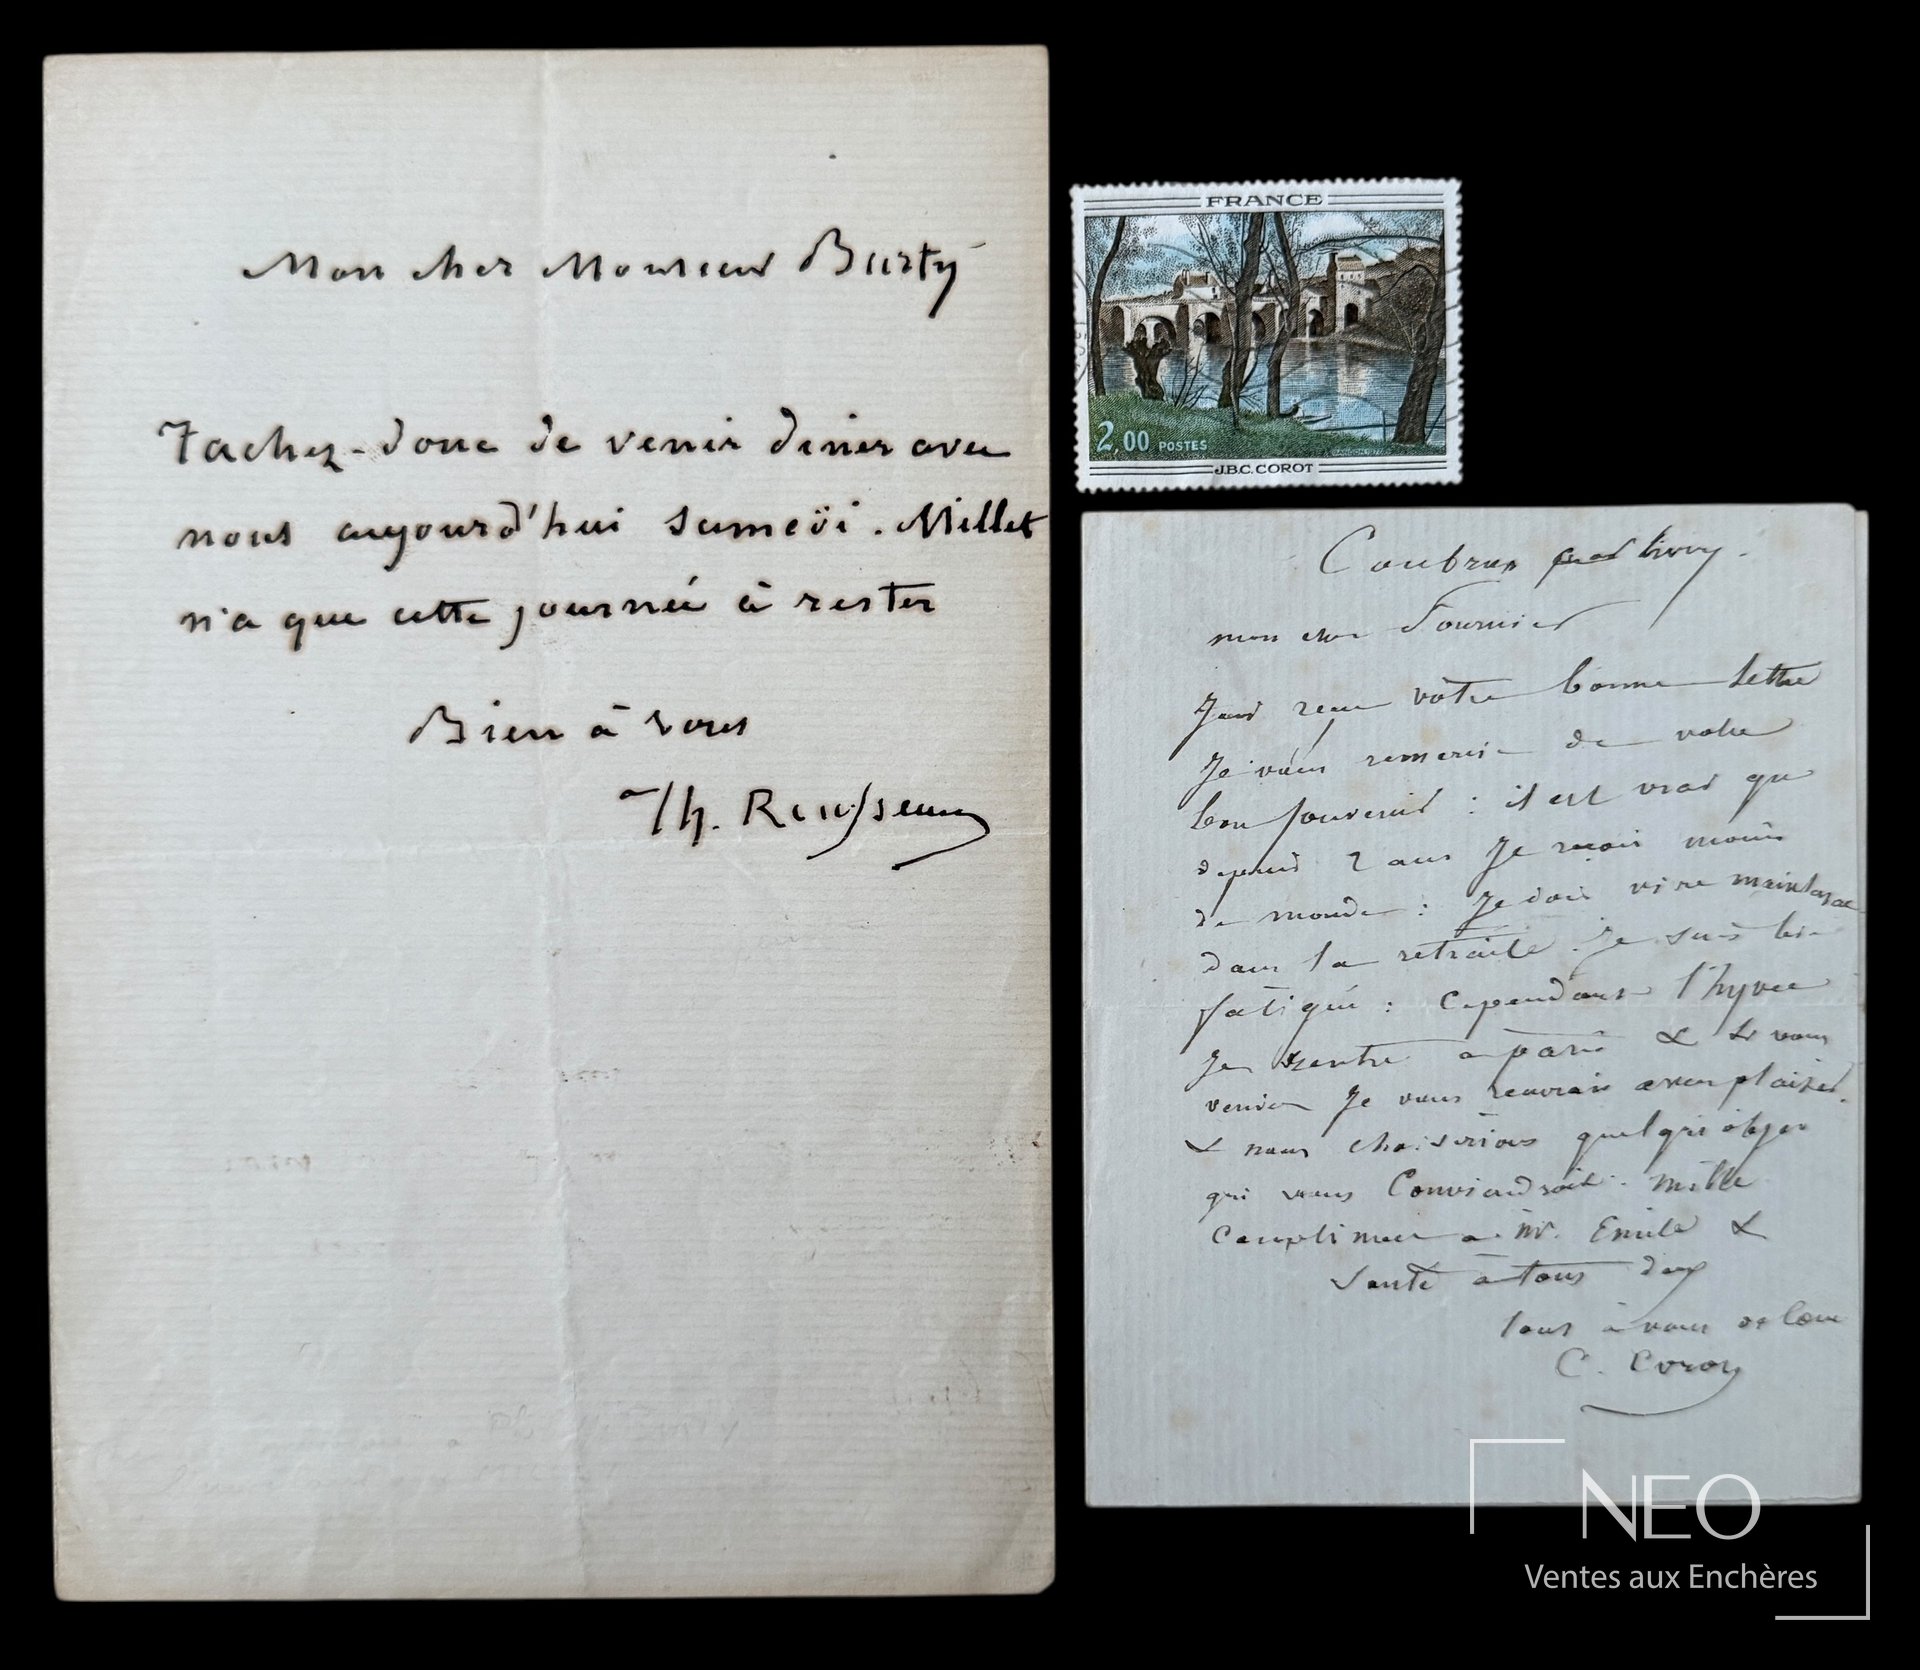 Mon cher Monsieur Burty
Tachez-donc de venir diner avec
nous aujourd'hui samedi. Millet
n'a que cette journée à rester
Bien à vous
Th. Rousseau
FRANCE
2,00 POSTES
J.B.C. COROT
Coubron par Livry.
mon cher Fournier
J'ai reçu votre bonne lettre
Je vous remercie de votre
bon souvenir : il est vrai que
depuis 2 ans Je vois moins
de monde : Je dois vivre maintenant
dans la retraite. Je suis
fatigué : cependant l'hyver
Je rentre a paris & si vous
veniez Je vous recevrais avec plaisir.
& nous choisirions quelqu'objet
qui vous Conviendrait. mille
compliments a Mr. Emile &
Santé à tous deux
tout à vous de Coeur
C. Corot
NEO
Ventes aux Enchères